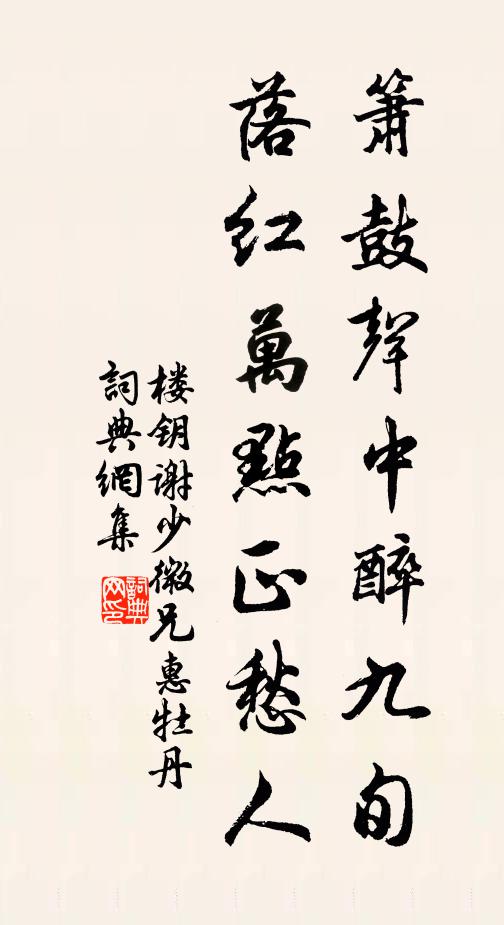 簫鼓聲中醉九旬
落紅萬點正愁人
楼钥谢少微兄惠牡丹
詞典網集
詞典网印